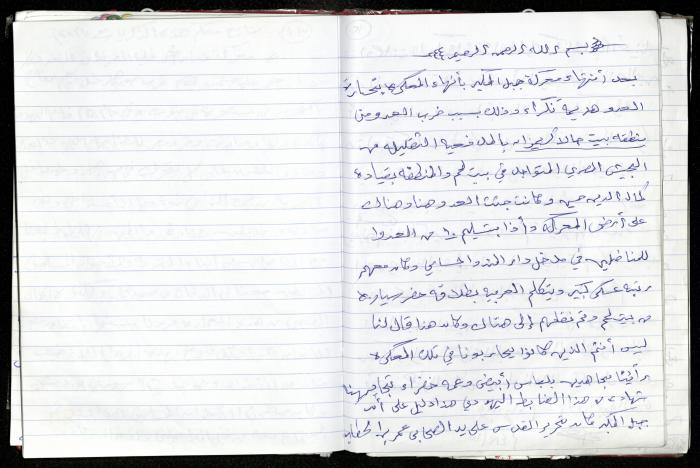 بسم الله الرحمن الرحيم
بعد أنتهاء معركة جبل المكبر بأنهاء المعركة بتجارة
العدو هزيمة نكراء وذلك بسبب ضرب العدو من
منطقة بيت جالا كريزان بالمدفعيه الثقيله من
الجيش المصري المتواجد في بيت لحم والمنطقه بقيادة
كمال الدين حسين وكانت جثث العدو هنا وهناك
على أرض المعركة وأذا بتسليم ١٠ من العدوا
للمناضلين في مدخل دار الندوا جسامي وكان معهم
رتبة عسكري كبير ويتكلم العربيه بطلاقه حضر سياره
من بيت لحم وتم نقلهم إلى هناك وكان هنا قال لنا
ليس أنتم الذين كانوا يحاربونا في تلك المعركة
رأينا مجاهدين بلباس أبيض وعمه خضراء تجابهنا
شهادة من هذا الضابط اليهودي هذا دليل على أن
جبل المكبر كان تحرير القدس على يد الصحابي عمر بن الخطاب